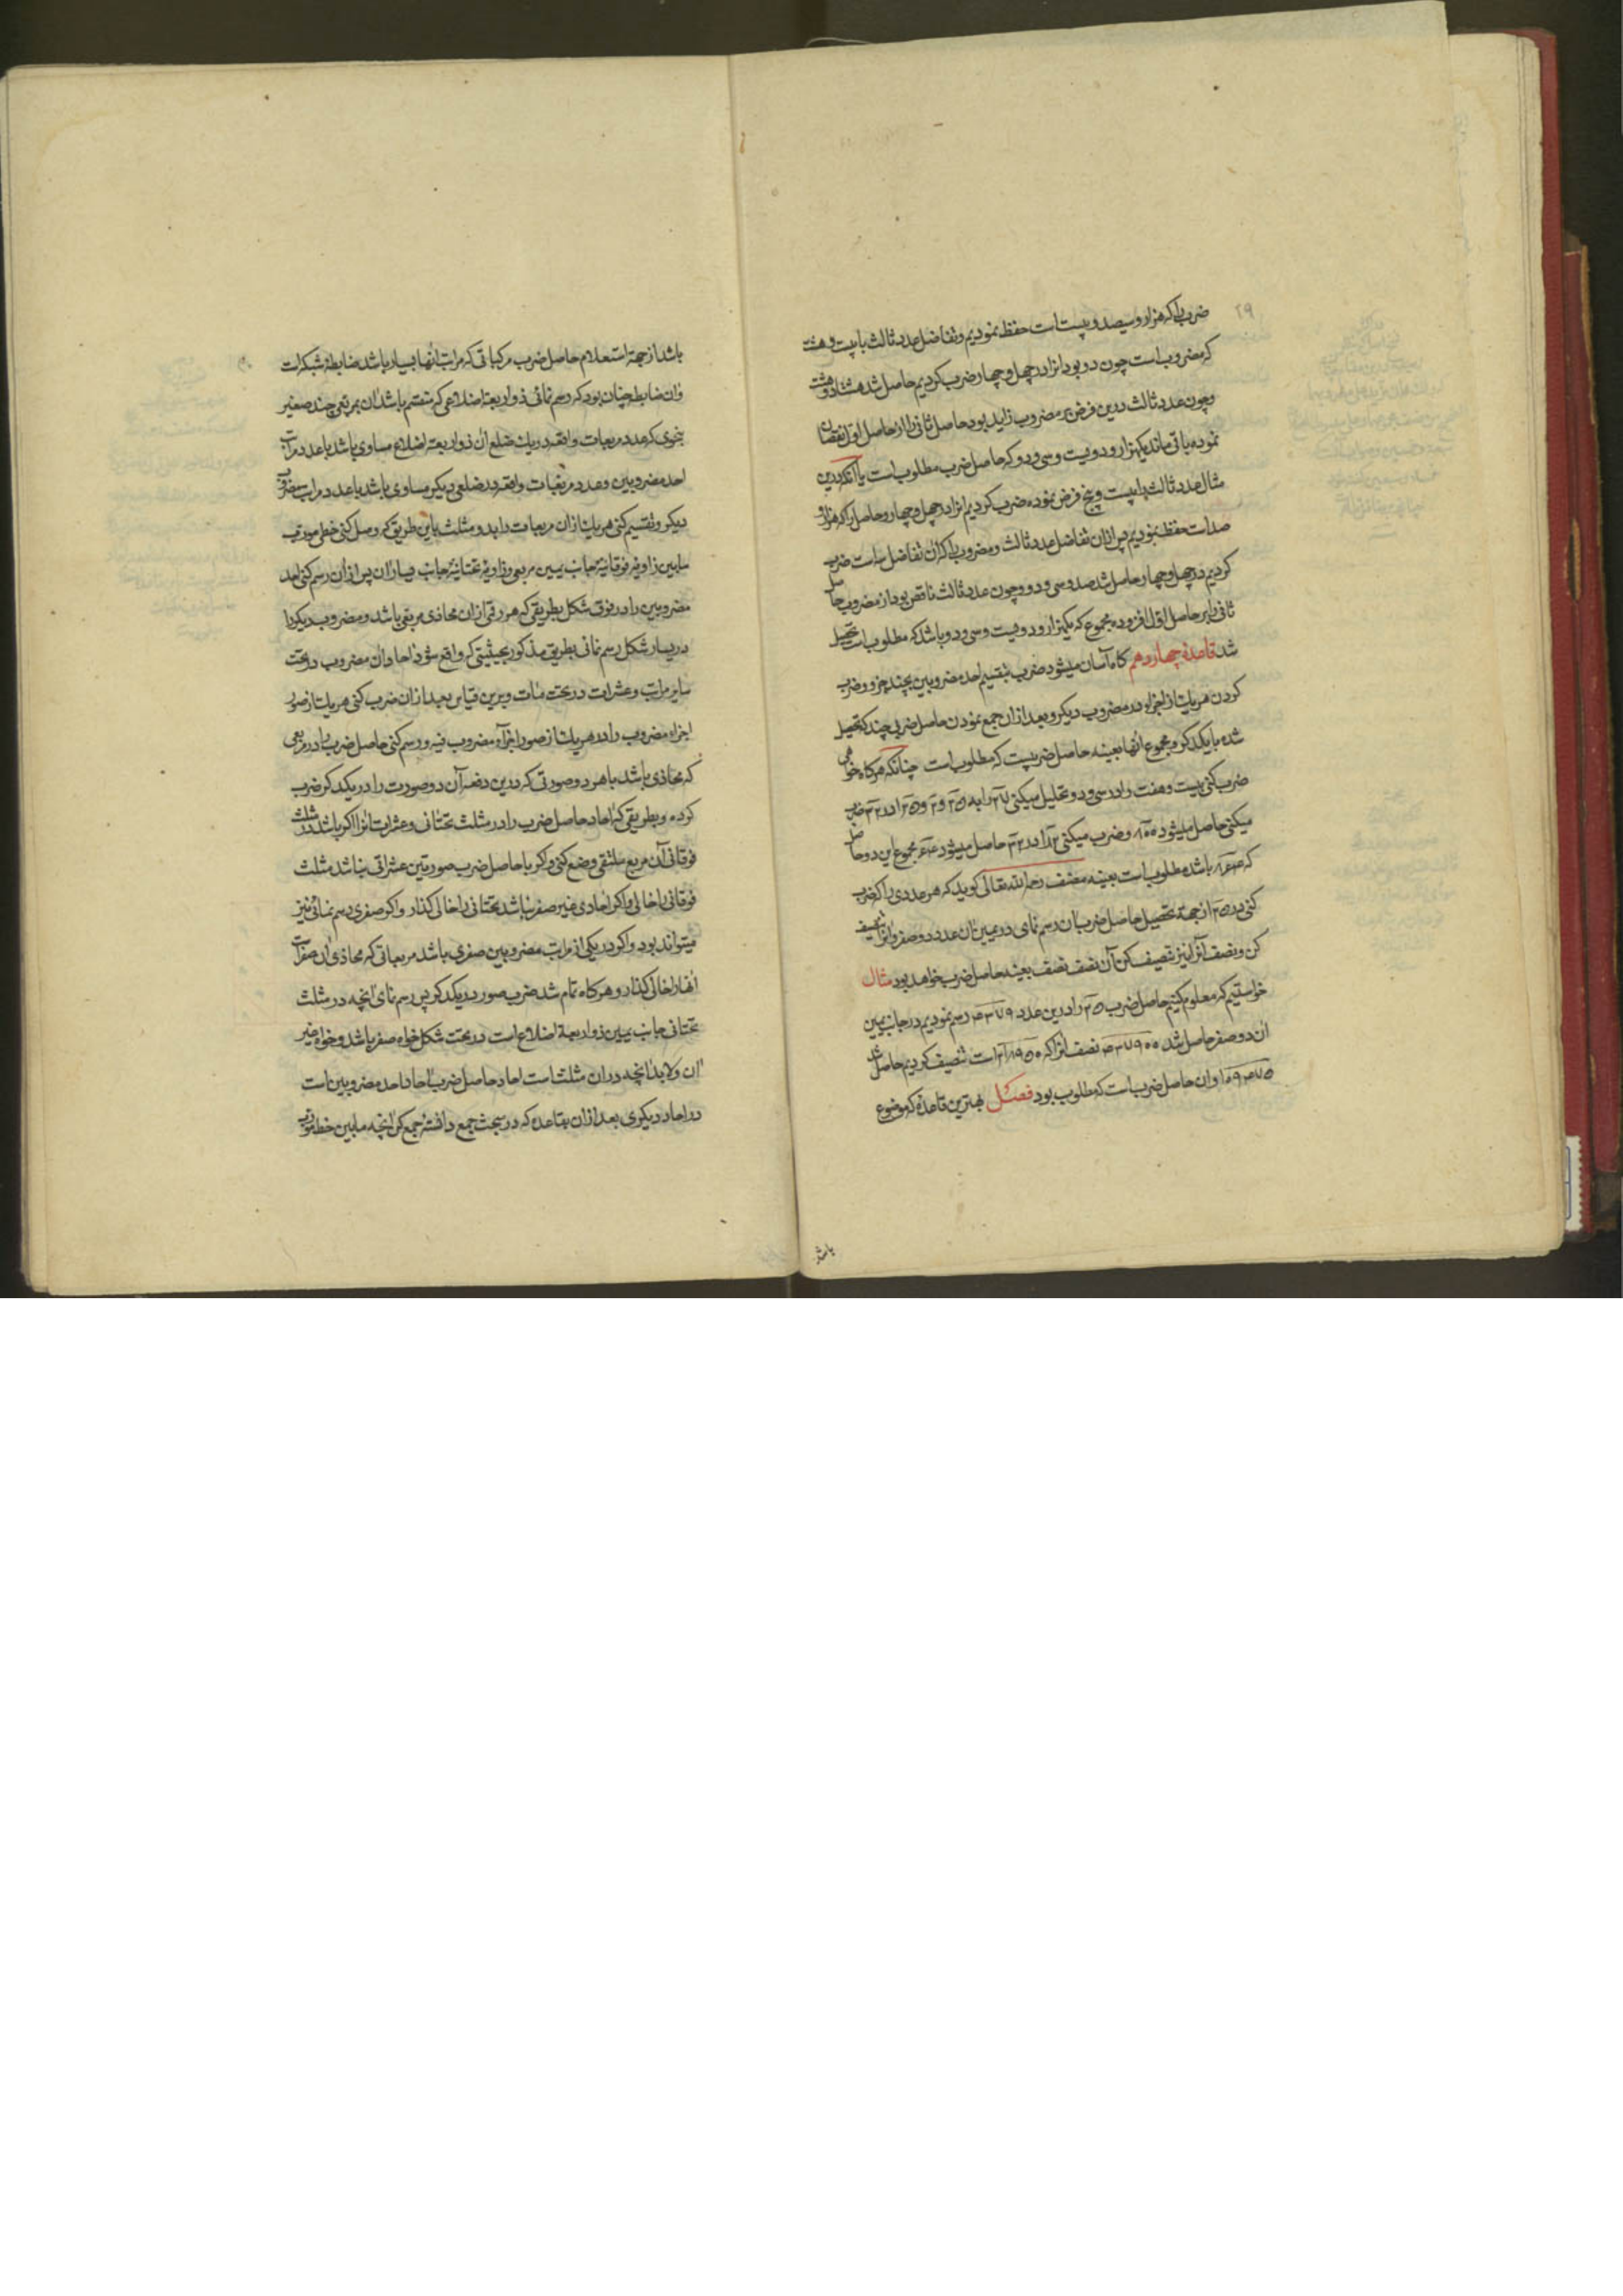 ۲۹
ضرب را که هزار و سیصد و بیست است حفظ نمودیم و تفاضل عدد ثالث با بیست و هشت
که مضروب است چون دو بود انرا در چهل و چهار ضرب کردیم حاصل شد هشتاد و هشت
و چون عدد ثالث درین فرض بر مضروب زاید بود حاصل ثانی را از حاصل اول نقصان
نموده باقی ماند یکهزار و دویست و سی و دو که حاصل ضرب مطلوب است یا آنکه درین
مثال عدد ثالث را بیست و پنج فرض نموده ضرب کردیم انرا در چهل و چهار و حاصل را که هزار و
صد است حفظ نمودیم پس ازان تفاضل عدد ثالث و مضروب را که ان تفاضل سه است ضرب
کردیم در چهل و چهار حاصل شد صد و سی و دو و چون عدد ثالث ناقص بود از مضروب حاصل
ثانی را بر حاصل اول افزوده مجموع که یکهزار و دویست و سی و دو باشد که مطلوب است تحصیل
شد قاعدهٔ چهاردهم کاه آسان میشود ضرب بتقسیم احد مضروبین بچند جزو و ضرب
کردن هریک از اجزاء در مضروب دیکر و بعد ازان جمع نمودن حاصل ضربی چند که تحصیل
شده با یکدکر و مجموع آنها بعینه حاصل ضربیست که مطلوب است چنانکه هرکاه خواهی
ضرب کنی بیست و هفت را در سی و دو تحلیل میکنی ۲۷ را به ۲۵ و ۲ و ۲۵ را در ۳۲ ضرب
میکنی حاصل میشود ۸۰۰ و ضرب میکنی ۲ را در ۳۲ حاصل میشود ۶۴ مجموع این دو حاصل
که ۸۶۴ باشد مطلوب است بعینه مصنف رحمه الله تعالی کوید که هر عددی را که ضرب
کنی در ۲۵ از جهة تحصیل حاصل ضرب ان رسم نمای در یمین ان عدد دو صفر و انرا تنصیف
کن و نصف انرا نیز تنصیف کن آن نصف نصف بعینه حاصل ضرب خواهد بود مثال
خواستیم که معلوم کنیم حاصل ضرب ۲۵ را درین عدد ۴۳۷۹ رسم نمودیم در جانب یمین
ان دو صفر حاصل شد ۴۳۷۹۰۰ نصف انرا که ۲۱۸۹۵۰ است تنصیف کردیم حاصل شد
۱۰۹۴۷۵ و ان حاصل ضرب است که مطلوب بود فصل بهترین قاعدهٔ که موضوع
باشد
باشد از جهة استعلام حاصل ضرب مرکباتی که مراتب آنها بسیار باشد ضابطهٔ شبکه است
و ان ضابطه چنان بود که رسم نمائی ذو اربعة اضلاعی که منقسم باشد ان بمربعی چند صغیر
بنحوی که عدد مربعات واقعه در یک ضلع آن ذو اربعه اضلاع مساوی باشد با عدد مراتب
احد مضروبین و عدد مربعات واقعه در ضلعی دیکر مساوی باشد با عدد مراتب مضروب
دیکر و تقسیم کنی هریک ازان مربعات را بدو مثلث باین طریق که وصل کنی خطی مورب
مابین زاویهٔ فوقانیهٔ جانب یمین مربعی و زاویهٔ تحتانیهٔ جانب یسار ان پس ازان رسم کنی احد
مضروبین را در فوق شکل بطریقی که هر رقمی ازان محاذی مربعی باشد و مضروب دیکر را
در یسار شکل رسم نمائی بطریق مذکور بحیثیتی که واقع شود احاد ان مضروب در تحت
سایر مراتب و عشرات در تحت مئات و برین قیاس بعد ازان ضرب کنی هریک از صور
اجزاء مضروب را در هریک از صور اجزآء مضروب فیه و رسم کنی حاصل ضرب را در مربعی
که محاذی باشد با هر دو صورتی که درین دفعه آن دو صورت را در یکدکر ضرب
کرده و بطریقی که احاد حاصل ضرب را در مثلث تحتانی و عشرات انرا اکر باشد در مثلث
فوقانی آن مربع ملتقی وضع کنی و اکر با حاصل ضرب صورتین عشراتی نباشد مثلث
فوقانی را خالی و اکر احادی غیر صفر نباشد تحتانی را خالی کذار و اکر صفری رسم نمائی نیز
میتواند بود و اکر در یکی از مراتب مضروبین صفری باشد مربعاتی که محاذی ان صفر است
آنها را خالی کذار و هرکاه تمام شد ضرب صور در یکدکر پس رسم نمای انچه در مثلث
تحتانی جانب یمین ذو اربعة اضلاع است در تحت شکل خواه صفر باشد و خواه غیر
ان و لابد انچه دران مثلث است احاد حاصل ضرب احاد احد مضروبین است
در احاد دیکری بعد ازان بقاعده که در مبحث جمع دانستهٔ جمع کن انچه مابین خط مورب